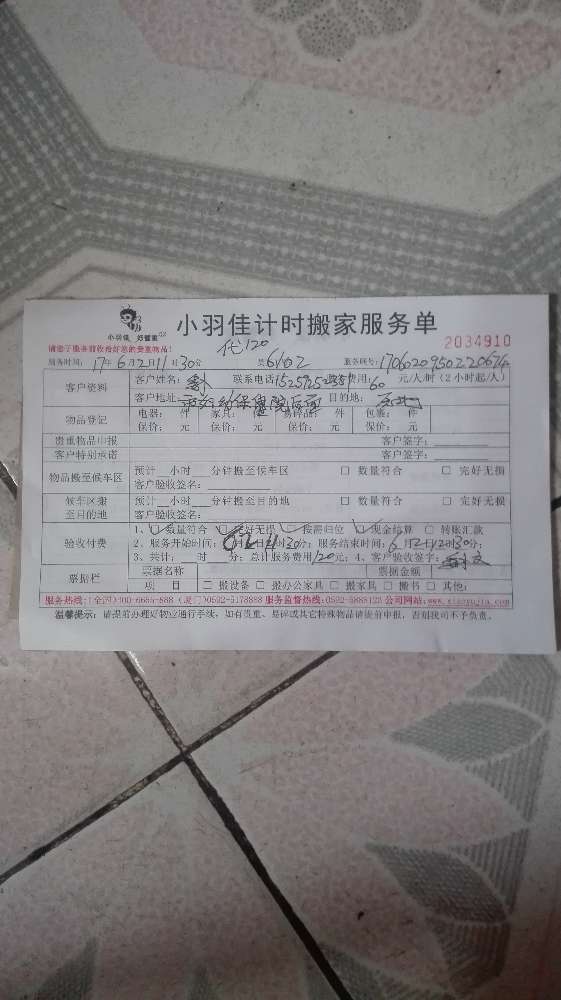 小羽佳 好管家
小羽佳计时搬家服务单
2034910
请您于服务前收拾好您的贵重物品!
代120
服务时间: 17年6月2日11时30分 服务顾号:
客户资料
客户姓名: 联系电话: 费用: 60 元/人/时 (2小时起/人)
客户地址: 目的地:
物品登记
电器: 件 家具: 件 易碎品: 件 包裹: 件
保价: 元 保价: 元 保价: 元 保价: 元
贵重物品申报 客户签字:
客户特别承诺 客户签字:
物品搬至候车区
预计 小时 分钟搬至候车区 □ 数量符合 □ 完好无损
客户验收签名:
候车区搬至目的地
预计 小时 分钟搬至目的地 □ 数量符合 □ 完好无损
客户验收签名:
验收付费
1、□ 数量符合 □ 完好无损 □ 按需归位 □ 现金结算 □ 转账汇款
2、服务开始时间: 6月2日11时30分; 服务结束时间: 6月2日12时30分;
3、共计: 时 分; 总计服务费用120元; 4、客户验收签字:
票据栏
票据名称 票据金额
项 目 □ 搬设备 □ 搬办公家具 □ 搬家具 □ 搬书 □ 其他:
服务热线:(全网)400-6685-888 (厦门)0592-5178888 服务监督热线:0592-5888123 公司网站:www.xiaoyujia.com
温馨提示: 请提前办理好物业通行手续, 如有贵重、易碎或其它特殊物品请提前申报, 否则我司不予负责.